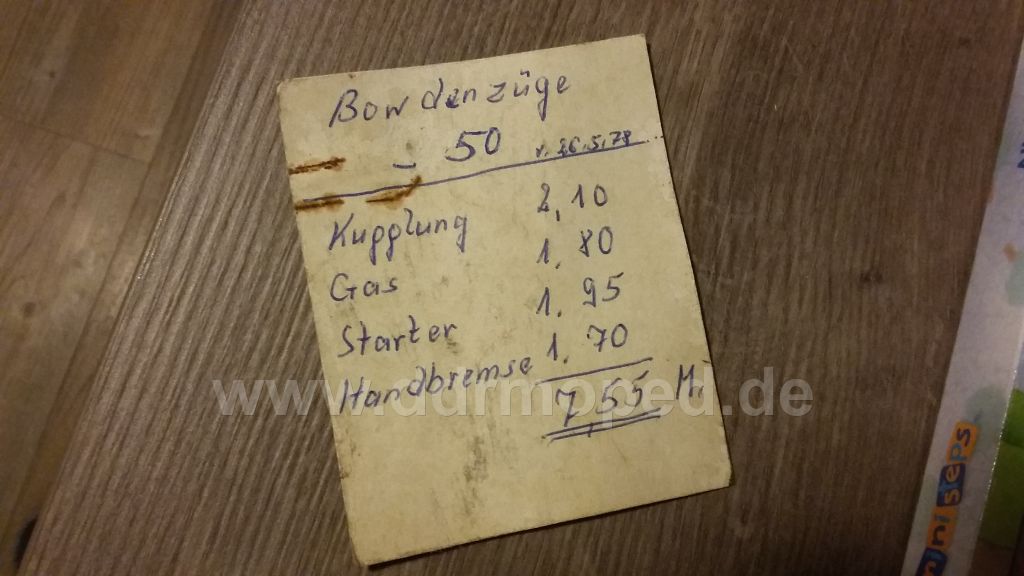 Bowdenzüge
- 50 v. 26.5.78
Kupplung 2,10
Gas 1.80
Starter 1.95
Handbremse 1.70
7,55 M.
www.ddrmoped.de
miniseps